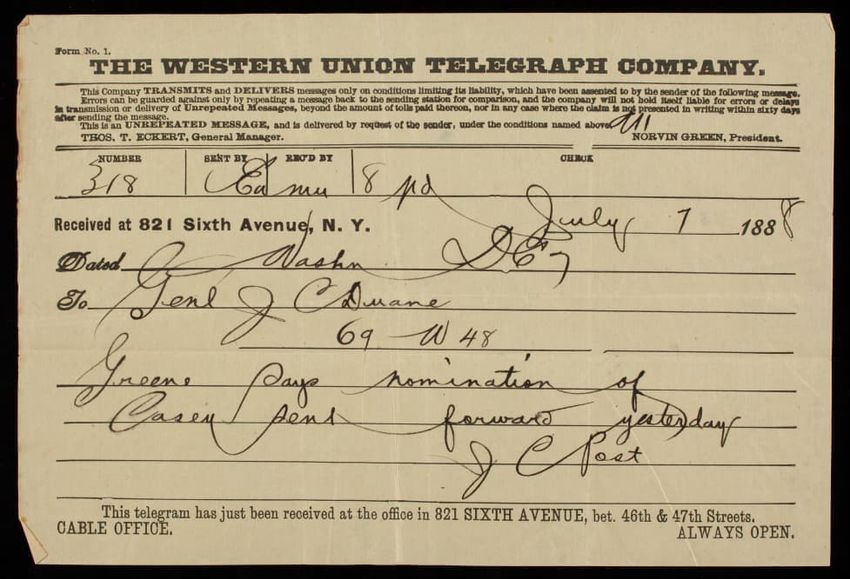 Form No. 1.
THE WESTERN UNION TELEGRAPH COMPANY.
This Company TRANSMITS and DELIVERS messages only on conditions limiting its liability, which have been assented to by the sender of the following message.
Errors can be guarded against only by repeating a message back to the sending station for comparison, and the company will not hold itself liable for errors or delays
in transmission or delivery of Unrepeated Messages, beyond the amount of tolls paid thereon, nor in any case where the claim is not presented in writing within sixty days
after sending the message.
This is an UNREPEATED MESSAGE, and is delivered by request of the sender, under the conditions named above.
THOS. T. ECKERT, General Manager. NORVIN GREEN, President.
NUMBER SENT BY REC'D BY CHECK
318 8 pd
Received at 821 Sixth Avenue, N. Y. July 7 1888
Dated Washn DC 7
To Genl J C Duane
69 W 48
Greene says nomination of
Casey send forward yesterday
J C Post
This telegram has just been received at the office in 821 SIXTH AVENUE, bet. 46th & 47th Streets.
CABLE OFFICE. ALWAYS OPEN.